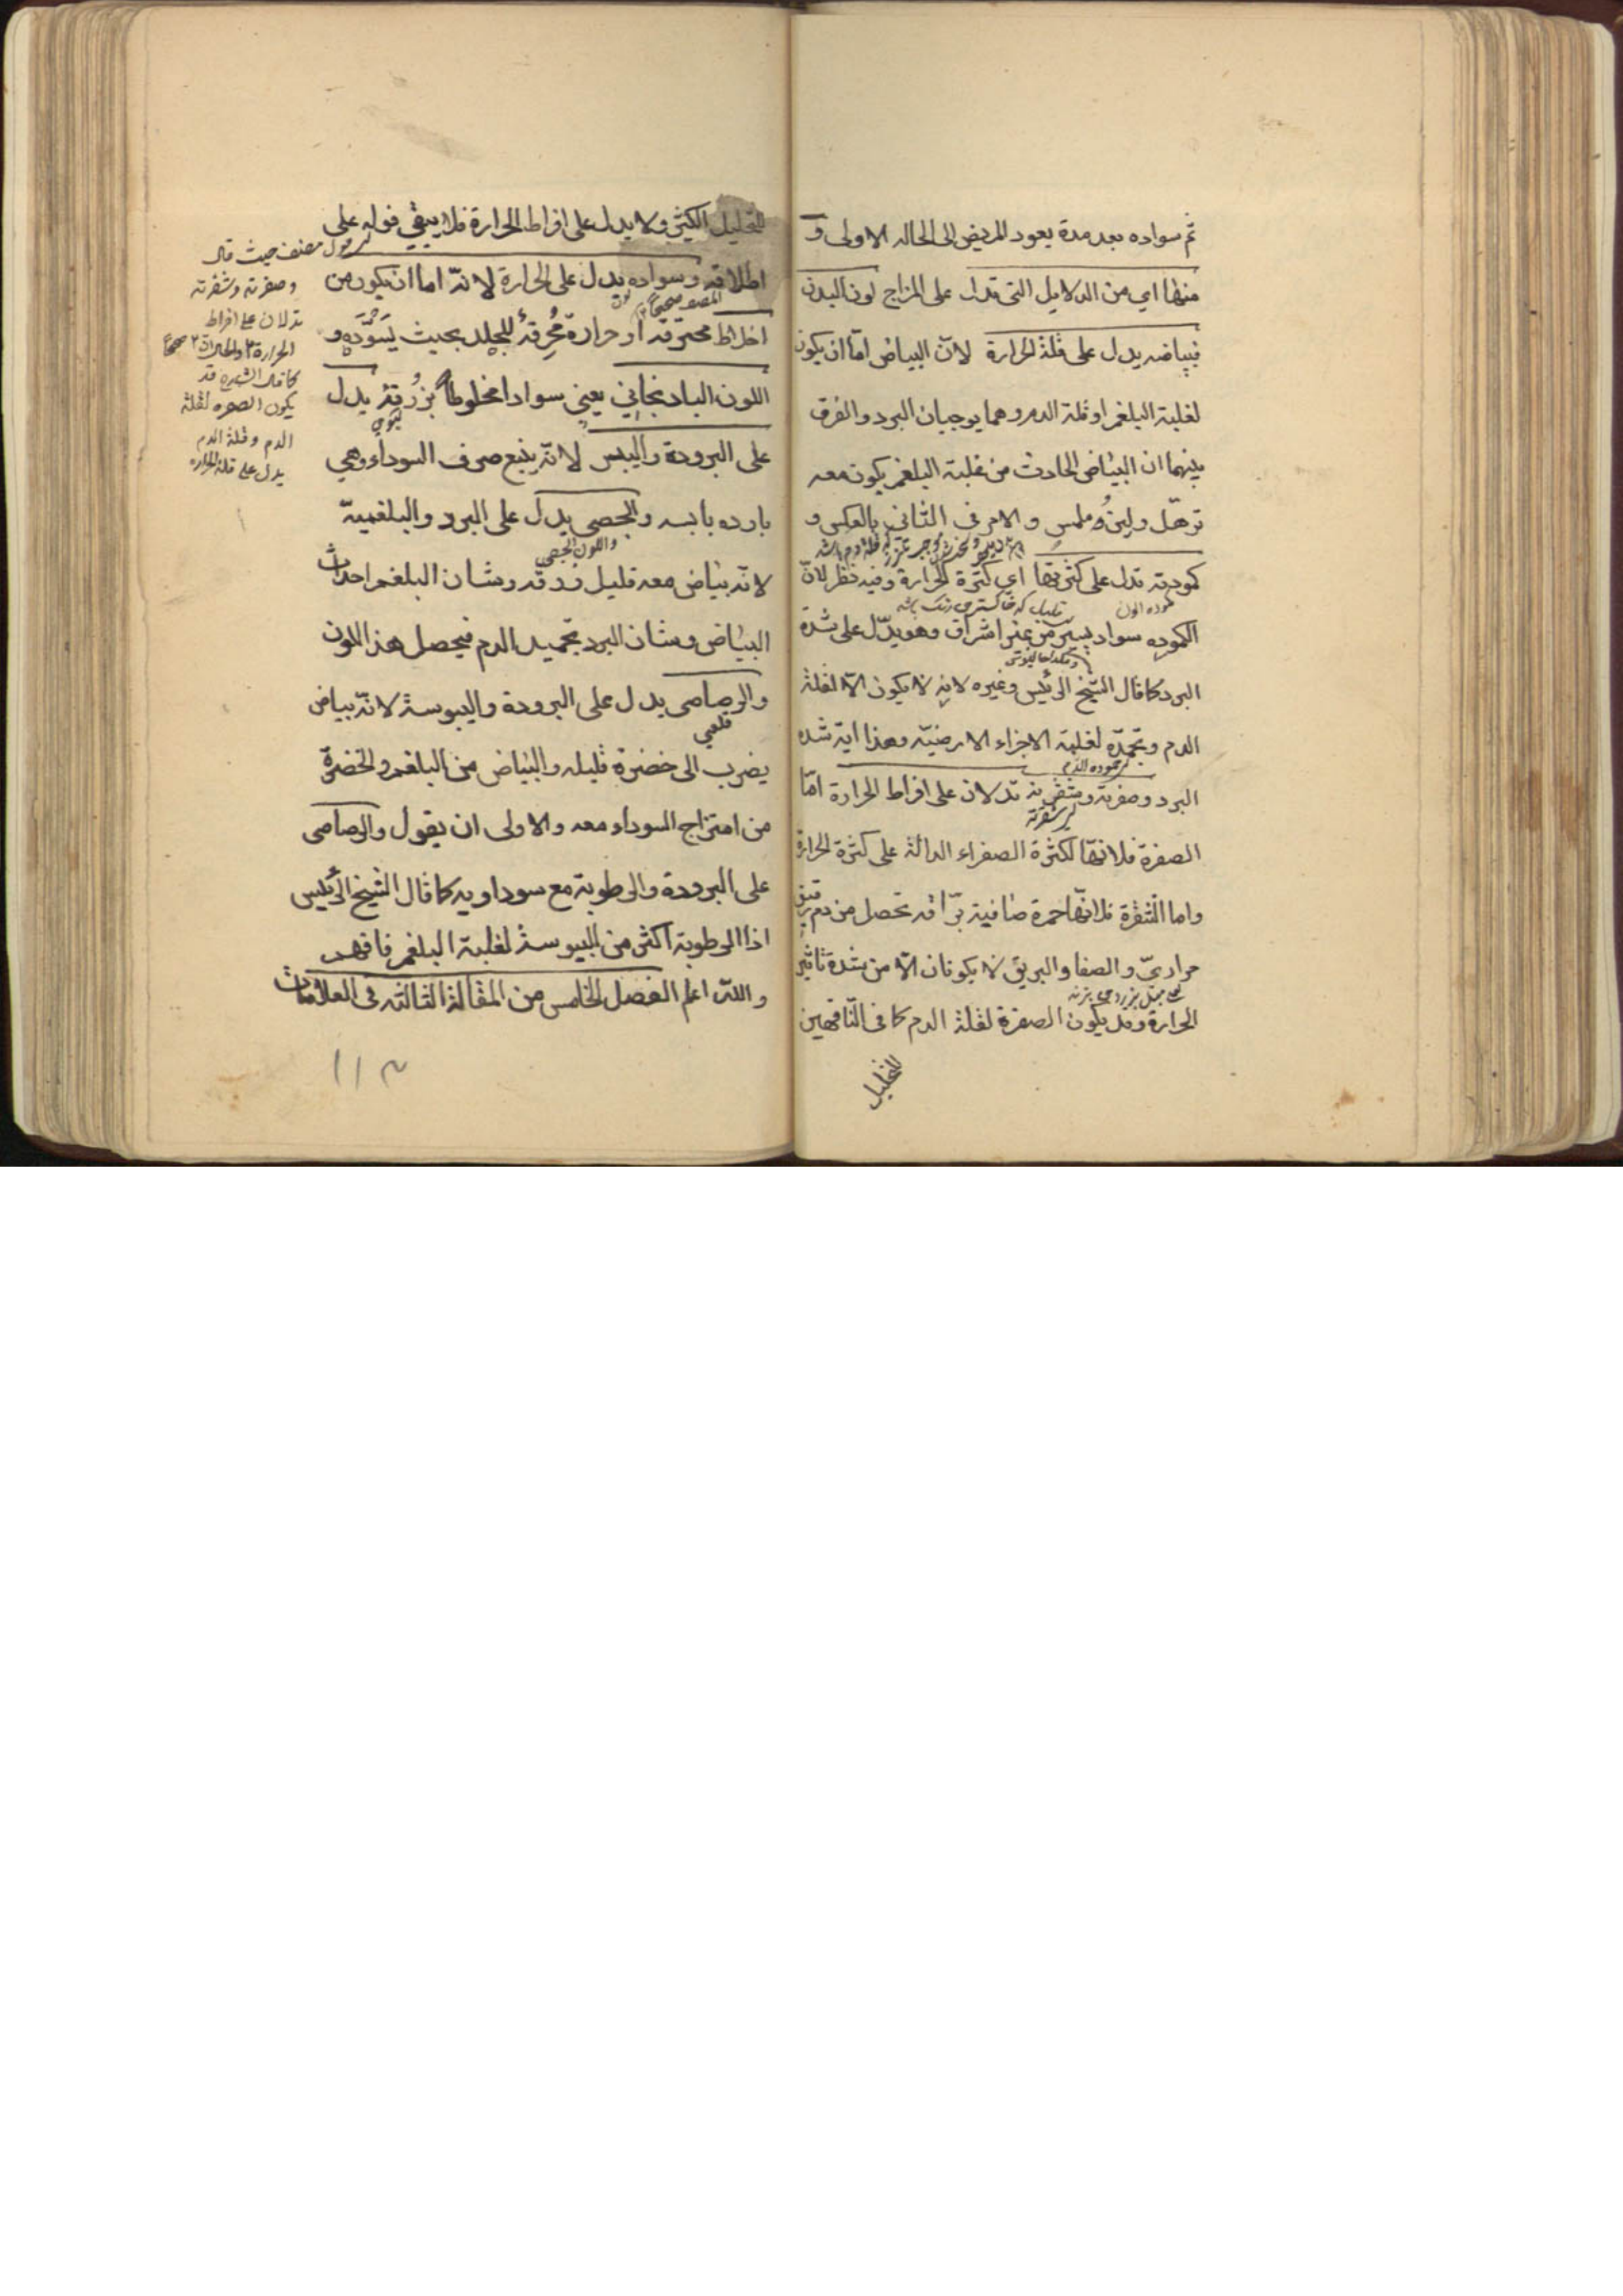 ثم سواده بعد مدة يعود المريض الى الحاله الاولى و
منها اي من الدلايل التى تدل على المزاج لون البدن
فبياضه يدل على قلة الحرارة لانّ البياض امّا ان يكون
لغلبة البلغم او قلة الدم وهما يوجبان البرد والفرق
بينهما ان البياض الحادث من غلبة البلغم يكون معه
ترهّل ولين وملمس والامر فى الثانى بالعكس و
كمودته تدل على كثرتها اي كثرة الحرارة وفيه نظر لانّ
كموده اللون
الكموده سواد يسير من غير اشراق وهو يدّل على شدة
البرد كما قال الشيخ الرئيس وغيره لانه لا يكون الّا لغلة
الدم وتجمّده لغلبة الاجزاء الارضيّه وهذا آية شده
البرد وصفرته وشقرته تدلان على افراط الحرارة امّا
الصفرة فلانّها لكثرة الصفراء الدالّة على كثرة الحرارة
واما الشقرة فلانّها حمرة صافية برّاقه تحصل من دم رقيق
مراريّ والصفا والبريق لا يكونان الّا من شدة تاثير
الحرارة وقد يكون الصفرة لقلة الدم كما فى النّاقهين
للتحليل
للتحليل الكثير ولا يدل على افراط الحرارة فلا يبقى قوله على
اطلاقه وسواده يدل على الحرارة لانّه اما ان يكون من
اخلاط محترقه او حرارة مُحرِقة للجلد بحيث يسوّده و
اللون الباد نجاني يعنى سوادا مخلوطاً بزرقة يدل
على البرودة واليبس لانّه يتبع صرف السوداء وهي
بارده يابسه والجصى يدل على البرد والبلغمية
واللون الجصى
لانّه بياض معه قليل زرقه وشان البلغم احداث
البياض وشان البرد تجميد الدم فيحصل هذا اللون
والرصاصى يدل على البرودة واليبوسة لانّه بياض
قلعى
يضرب الى خضرة قليله والبياض من البلغم والخضرة
من امتزاج السوداء معه والاولى ان يقول والرصاصى
على البرودة والرطوبة مع سوداويه كما قال الشيخ الرئيس
اذا الرطوبة اكثر من اليبوسة لغلبة البلغم فافهم
والله اعلم الفصل الخامس من المقالة الثالثه فى العلامات
مصنف حيث قال
وصفرته وشقرته
تدلان على افراط
الحرارة
كما قال الشيخ قد
يكون الصفره لقلة
الدم وقلة الدم
يدل على قلة الحراره